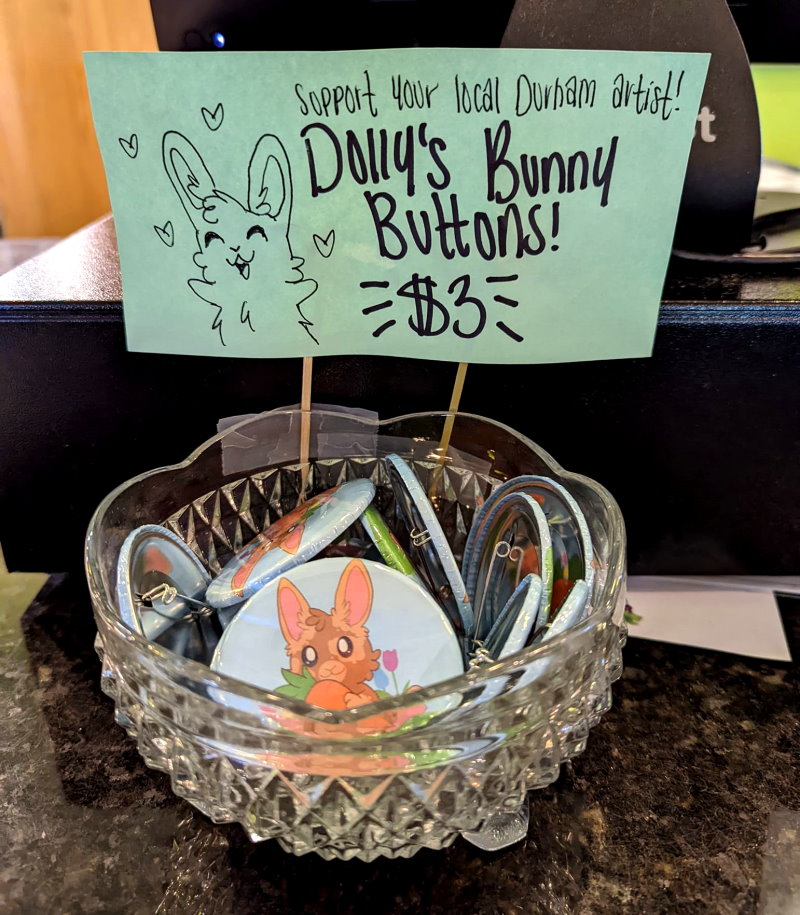 Support your local Durham artist!
Dolly's Bunny
Buttons!
$3